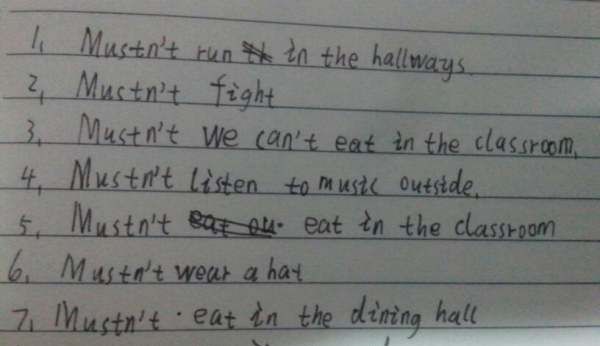 1, Mustn't run in the hallways.
2, Mustn't fight
3, Mustn't we can't eat in the classroom.
4, Mustn't listen to music outside.
5, Mustn't eat in the classroom
6, Mustn't wear a hat
7, Mustn't · eat in the dining hall